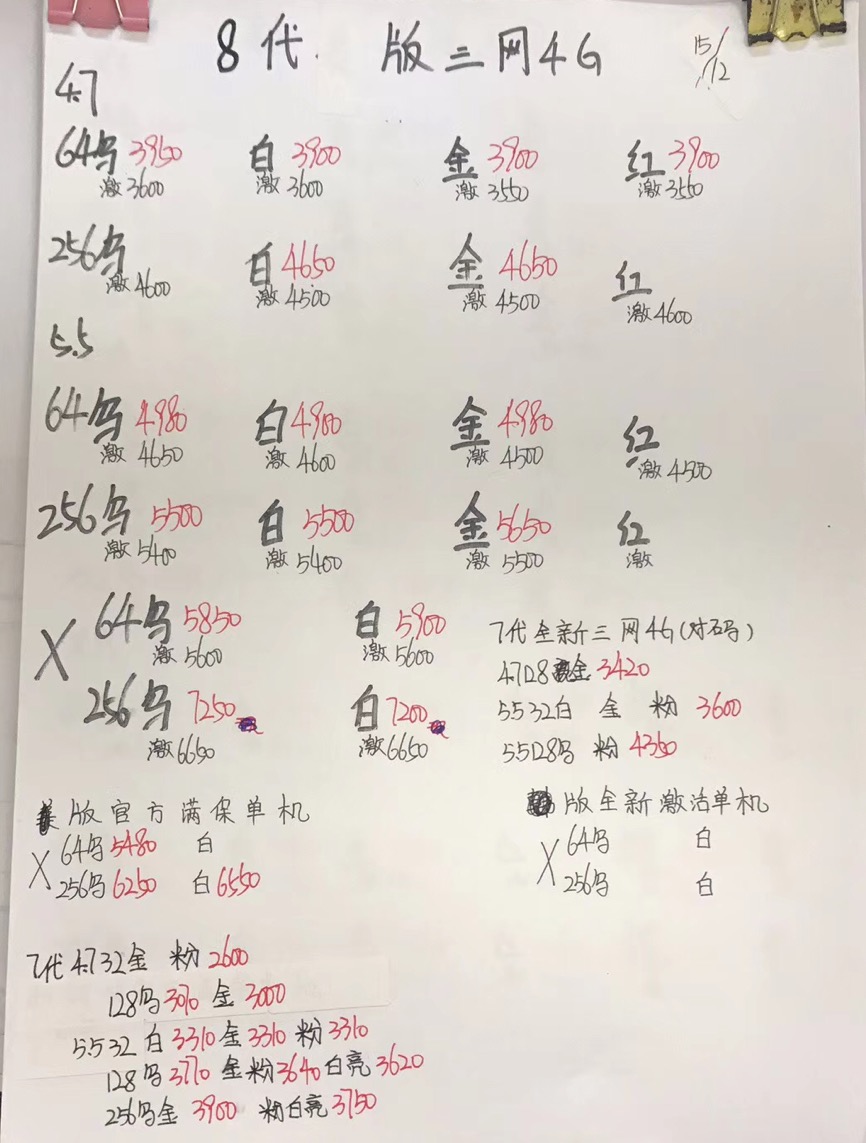 8代 版三网4G 15/12
4.7
64乌 3950 白 3900 金 3900 红 3900
激3600 激3600 激3550 激3550
256乌 白4650 金4650 红
激4600 激4500 激4500 激4600
5.5
64乌 4980 白4900 金4980 红
激4650 激4600 激4500 激4500
256乌 5500 白 5500 金5650 红
激5400 激5400 激5500 激
X 64乌5850 白5900
激5600 激5600
256乌 7250 白7200
激6650 激6650
7代全新三网4G(对码)
4.7128 金 3420
5532白 金 粉 3600
55128乌 粉 4350
版官方满保单机
X 64乌5480 白
256乌6250 白6550
版全新激活单机
X 64乌 白
256乌 白
7代 4.732金 粉2600
128乌3070 金3000
5.532 白3310金3310粉3310
128乌3770 金粉3640白亮3620
256乌金 3900 粉白亮3750